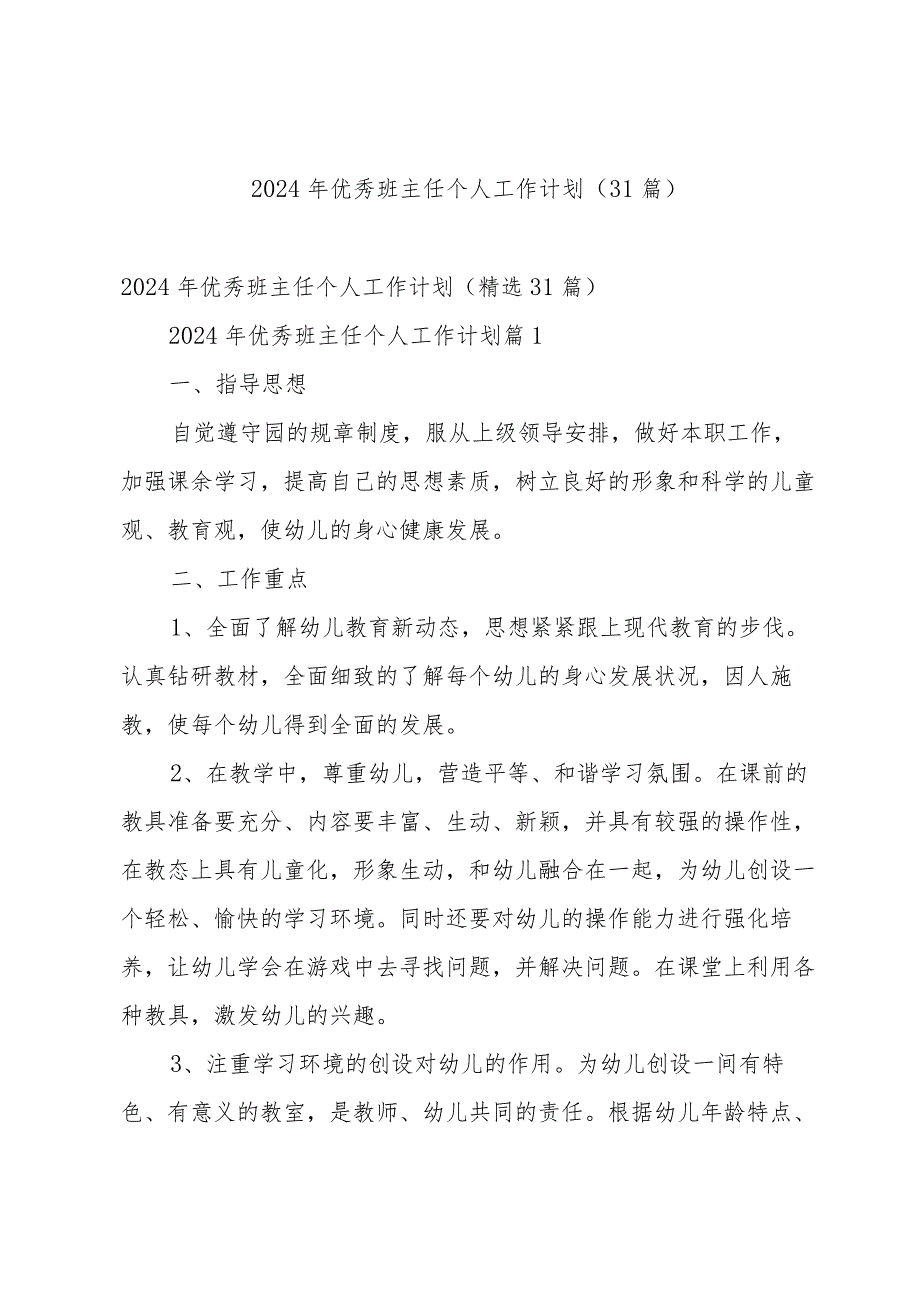 2024 年优秀班主任个人工作计划（31 篇）
2024 年优秀班主任个人工作计划（精选 31 篇）
2024 年优秀班主任个人工作计划篇 1
一、指导思想
自觉遵守园的规章制度，服从上级领导安排，做好本职工作，
加强课余学习，提高自己的思想素质，树立良好的形象和科学的儿童
观、教育观，使幼儿的身心健康发展。
二、工作重点
1、全面了解幼儿教育新动态，思想紧紧跟上现代教育的步伐。
认真钻研教材，全面细致的了解每个幼儿的身心发展状况，因人施
教，使每个幼儿得到全面的发展。
2、在教学中，尊重幼儿，营造平等、和谐学习氛围。在课前的
教具准备要充分、内容要丰富、生动、新颖，并具有较强的操作性，
在教态上具有儿童化，形象生动，和幼儿融合在一起，为幼儿创设一
个轻松、愉快的学习环境。同时还要对幼儿的操作能力进行强化培
养，让幼儿学会在游戏中去寻找问题，并解决问题。在课堂上利用各
种教具，激发幼儿的兴趣。
3、注重学习环境的创设对幼儿的作用。为幼儿创设一间有特
色、有意义的教室，是教师、幼儿共同的责任。根据幼儿年龄特点、